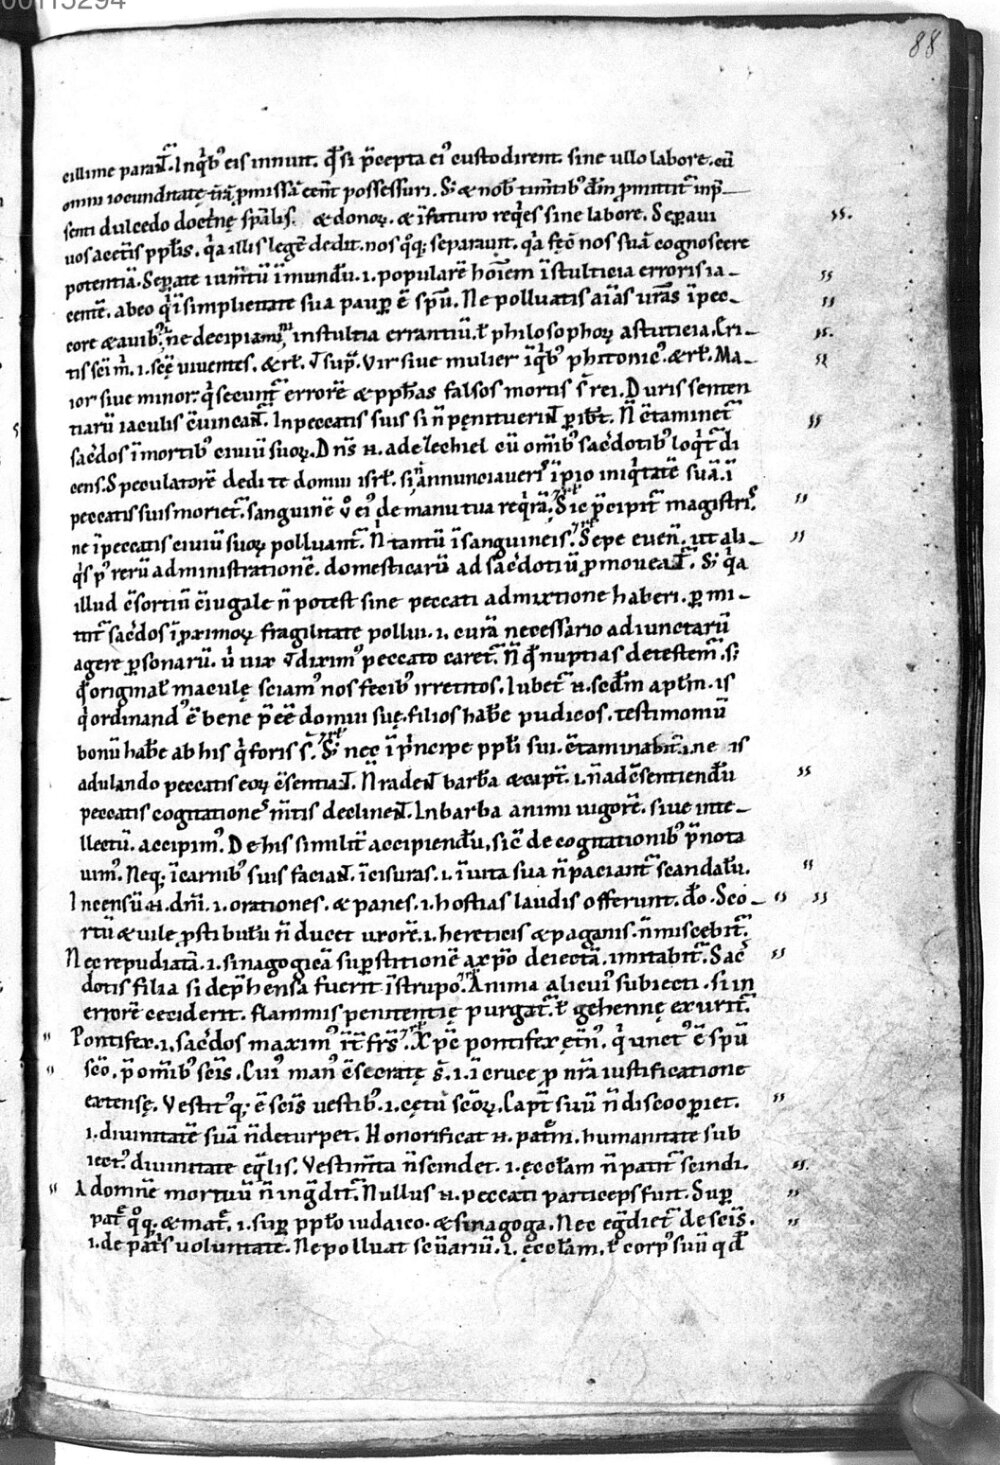 00115294
88
cillime parant̄. In q̇b᷒ eis innuit. q̄ si p̄cepta ei᷒ custodirent. sine ullo labore. cū
omni iocunditate t̄rā p̄missā eēnt possessuri. S; & nob̄ timētib᷒ dm̄ promittit inp̄
senti dulcedo doct̄nę sp̄alis. & donoꝝ. & ī futuro req̇es sine labore. Separaui
uos a cet̄is pp̄lis. q̇a illis legē dedit. nos q̊q; separauit. q̇a fecit nos suā cognoscere
potentiā. Separate iumt̄ū īmundū. i. popularē hoīem ī stulticia erroris ia-
centē. ab eo q̇ ī simplicitate sua paup̄ ē spū. Ne polluatis aīas ur̄as ī pec-
core & auib᷒. ne decipiam̄ stultia errantiū. ł philosophoꝝ astuticia. Eri-
tis sc̄i m̄. i. scē uiuentes. & rł. Vir siue mulier ī q̇b᷒ phitonic᷒. & rł. Ma-
ior siue minor. q̇ secunt̄ errorē & pphas falsos mortis s̄ rei. Duris senten
tiarū iaculis c̄uincant̄. In peccatis suis si n̄ penituerint p̄ibt̄. N̄ c̄taminet̄
sac̄dos ī mortib᷒ ciuiū suoꝝ. Dn̄s n̄. ad ezechiel cū om̄ib᷒ sac̄dotib᷒ loq̇t̄ di
cens. Speculatorē dedi te domui isrł. si n̄ annunciaueris īpio iniq̇tatē suā. ī
peccatis suis moriet̄. sanguinē ů ei᷒ de manu tua req̇rā. Sic p̄cipit̄ magistri᷒
ne ī peccatis ciuiū suoꝝ polluant̄. N̄ tantū ī sanguineis. Sepe euen̄. ut ali-
q̇s p᷒ rerū administrationē. domesticarū ad sac̄dotiū promoueat̄. S; q̇a
illud c̄sortiū c̄iugale n̄ potest sine peccati admixtione haberi. ꝑmi-
tit̄ sac̄dos ī p̄ximoꝝ fragilitate pollui. i. curā necessario adiunctarū
agere ꝑsonarū. ů uix ut dixim᷒ peccato caret̄. N̄ q̄ nuptias detestem̄. s;
q̄ originał maculę sciam᷒ nos fecib᷒ irretitos. Iubet̄ n̄. sedm̄ aptm̄. is
q̇ ordinand᷒ ē bene p̄eē domui suę. filios hab̄e pudicos. testimoniū
bonū hab̄e ab his q̇ foris s̄. S; nec ī p̄ncipe ppłi sui. c̄taminabit̄. i. ne is
adulando peccatis eoꝝ c̄sentiat̄. N̄ radent barb̄a & capt̄. i. n̄ ad c̄sentiendū
peccatis cogitatione᷒ mt̄is declinent̄. In barba animi uigorē. siue inte-
llectū. accipim᷒. De his similit̄ accipiendū, sic̄ de cogitationib᷒ p̄nota
uim᷒. Neq; ī carnib᷒ suis faciant̄. īcisuras. i. ī uita sua n̄ paciant̄ scandalū.
Incensū n̄. dnī. i. orationes. & panes. i. hostias laudis offerunt. do. Sco-
rtū & uile p̄stibulū n̄ ducet uxorē. i. hereticis & paganis. n̄ miscebit̄.
Nec repudiatā. i. sinagogicā suꝑstitionē a xpo deiectā. imitabit̄. Sac̄
dotis filia si dep̄hensa fuerit ī strupo. Anima alicui᷒ subiecti. si in
errorē ceciderit. flammis penitentię purgat̄. ł gehennę exurit̄.
Pontifex. i. sac̄dos maxim᷒ īt̄ frs̄. Xpc̄ pontifex etn᷒. q̇ unct᷒ ē spū
sc̄o. p̄ omīb᷒ sc̄is. Cui᷒ man᷒ c̄secratę s̄. i. ī cruce pro nr̄a iustificatione
extensę. Vestit᷒q; ē sc̄is uestib᷒. i. cętū scōꝝ. Capt̄ suū n̄ discooperiet.
i. diuinitatē suā n̄ deturpet. Honorificat n̄. patm̄. humanitate sub
iect᷒. diuinitate eq̄lis. Vestimt̄a n̄ scindet. i. ęccłam n̄ patit̄ scindi.
Ad omnē mortuū n̄ ingd̄it̄. Nullus n̄. peccati particeps fuit. Suꝑ
pat̄ q̊q;. & mat̄. i. suꝑ pplo iudaico. & sinagoga. Nec egd̄iet̄ de sc̄is.
i. de pat̄s uoluntate. Ne polluat sc̄uariū. i. ęccłam. ł corp᷒ suū qd̄